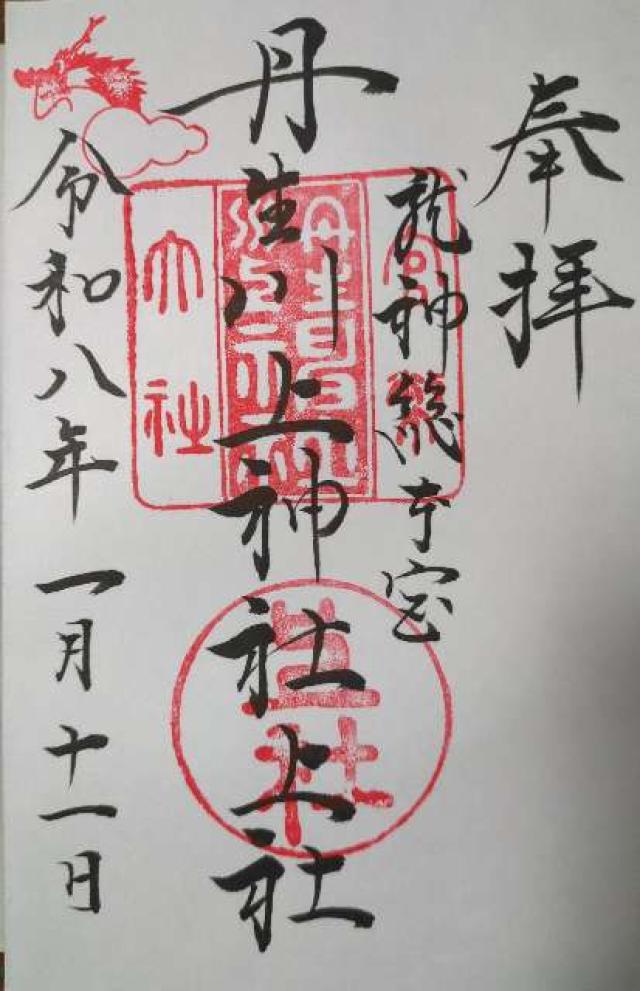 奉拝
龍神総本宮
丹生川上神社上社
令和八年一月十一日
大社